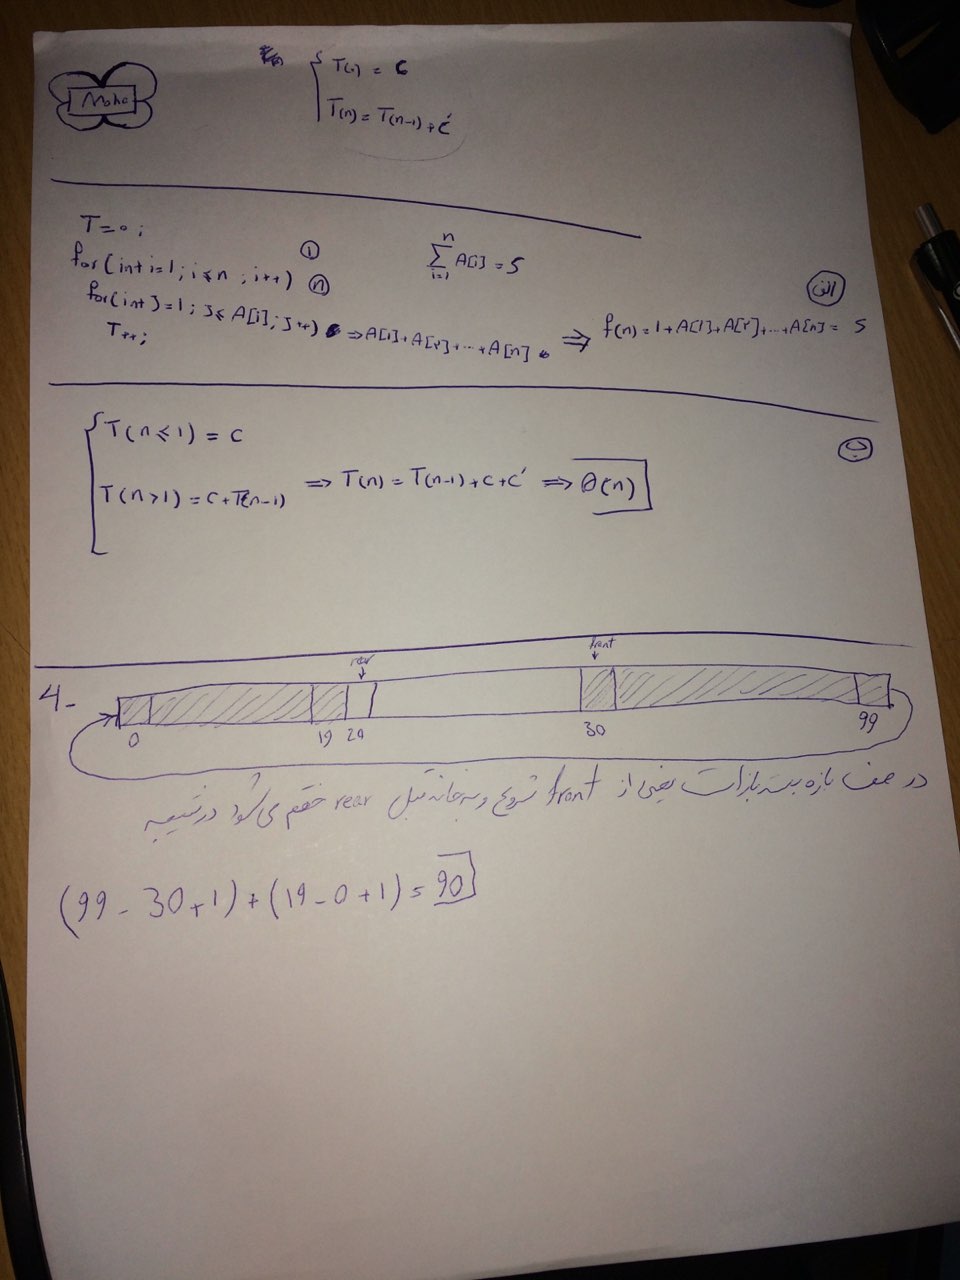 Moha
T(0) = C
T(n) = T(n-1) + C'
T=0;
for(int i=1; i≤n; i++) ①
for(int J=1; J≤A[i]; J++) ⓝ ⇒ A[1]+A[۲]+...+A[n]
T++;
∑ i=1 n A[i] = S
⇒ f(n) = 1+A[1]+A[۲]+...+A[n] = S
الف
T(n≤1) = C
T(n>1) = C+T(n-1) ⇒ T(n) = T(n-1)+C+C' ⇒ θ(n)
ب
4-
rear front
0 19 20 30 99
در صف بازه بسته باز است یعنی از front شروع و به خانه قبل rear ختم می شود در نتیجه
(99 - 30 + 1) + (19 - 0 + 1) = 90